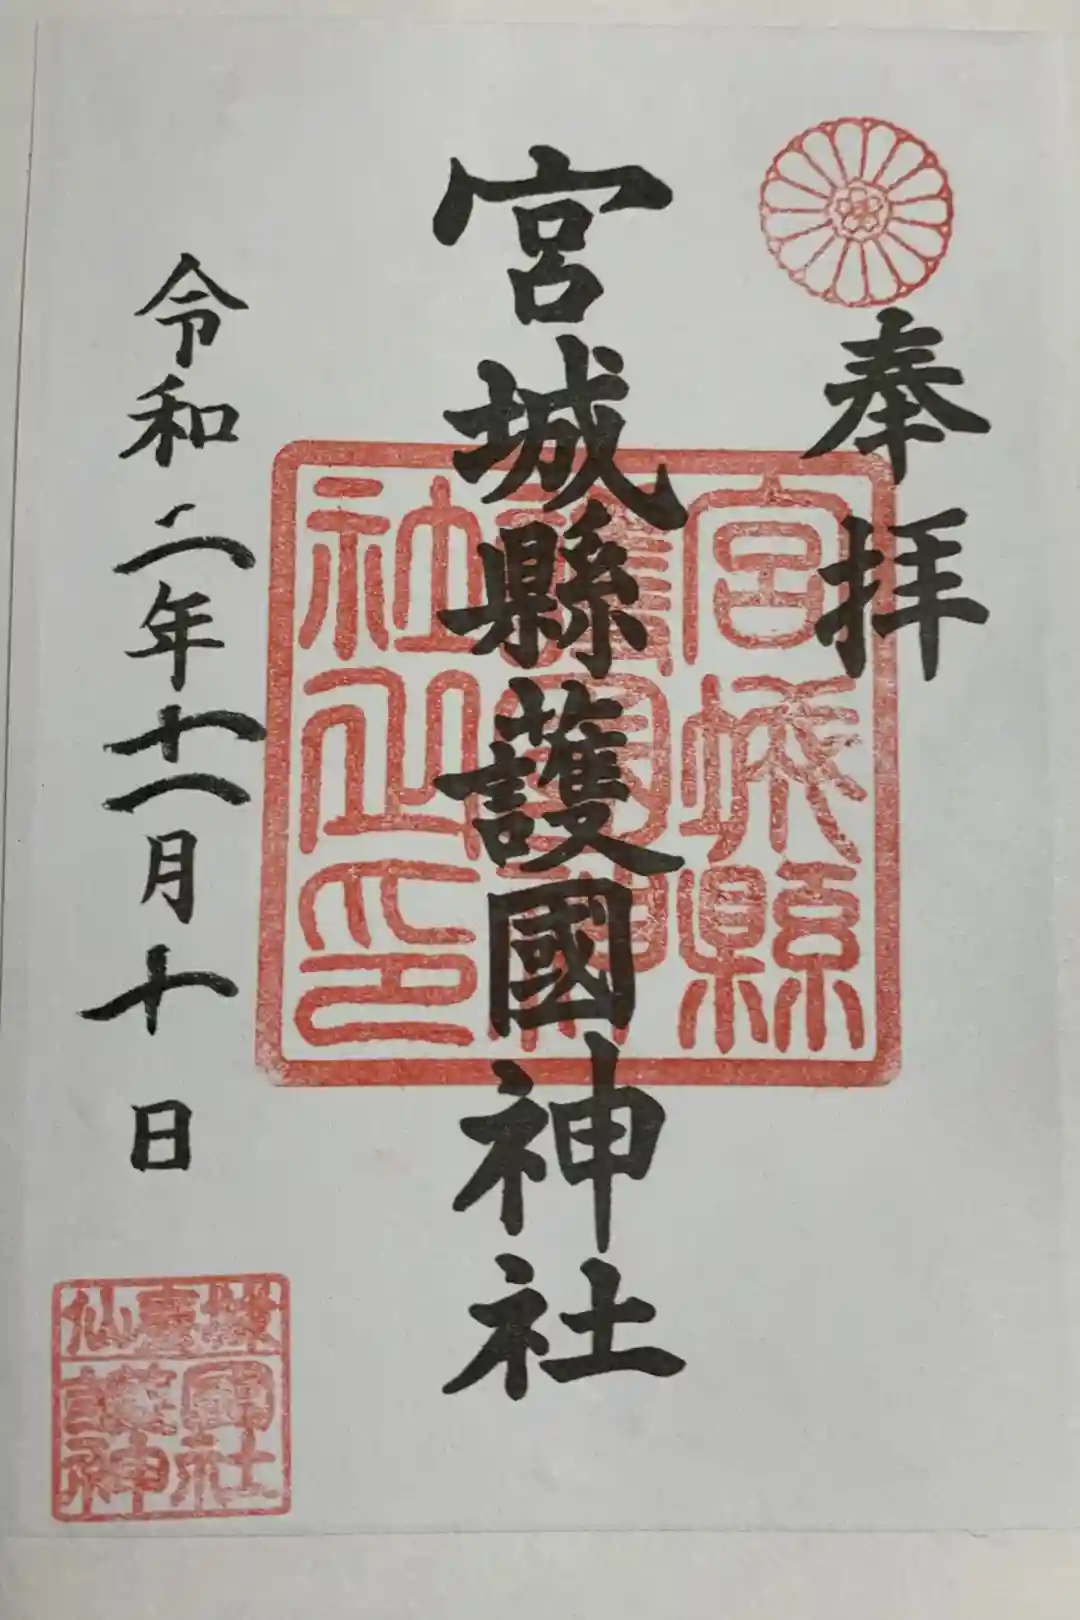 奉拝
宮城縣護國神社
宮城縣
護國神
社之印
令和二年十一月十日
仙臺城
護國
神社